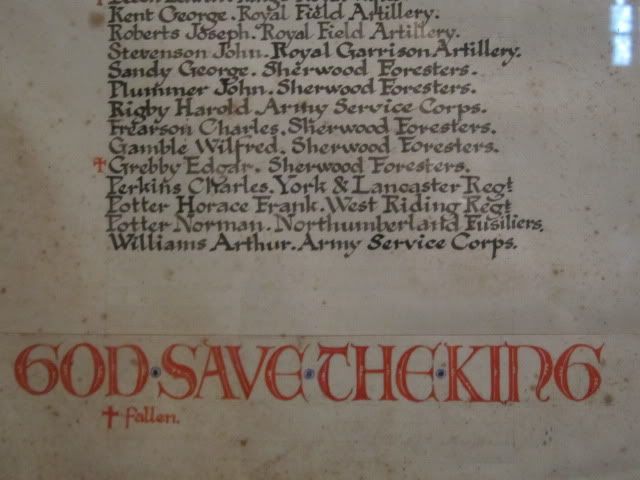 Kent George. Royal Field Artillery.
Roberts Joseph. Royal Field Artillery.
Stevenson John. Royal Garrison Artillery.
Sandy George. Sherwood Foresters.
Plummer John. Sherwood Foresters.
Rigby Harold. Army Service Corps.
Frearson Charles. Sherwood Foresters.
Gamble Wilfred. Sherwood Foresters.
✝ Grebby Edgar. Sherwood Foresters.
Perkins Charles. York & Lancaster Regt
Potter Horace Frank. West Riding Regt
Potter Norman. Northumberland Fusiliers.
Williams Arthur. Army Service Corps.
GOD·SAVE·THE·KING
✝ fallen.